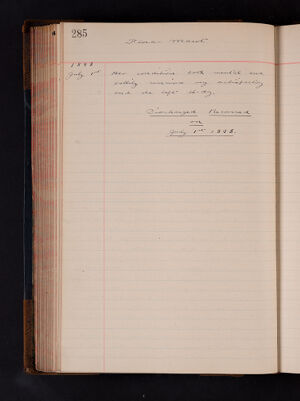 285
July 1st Her condition, both mental and
bodily remains very satisfactory
and she left to-day.
Discharged Recovered
on
July 1st